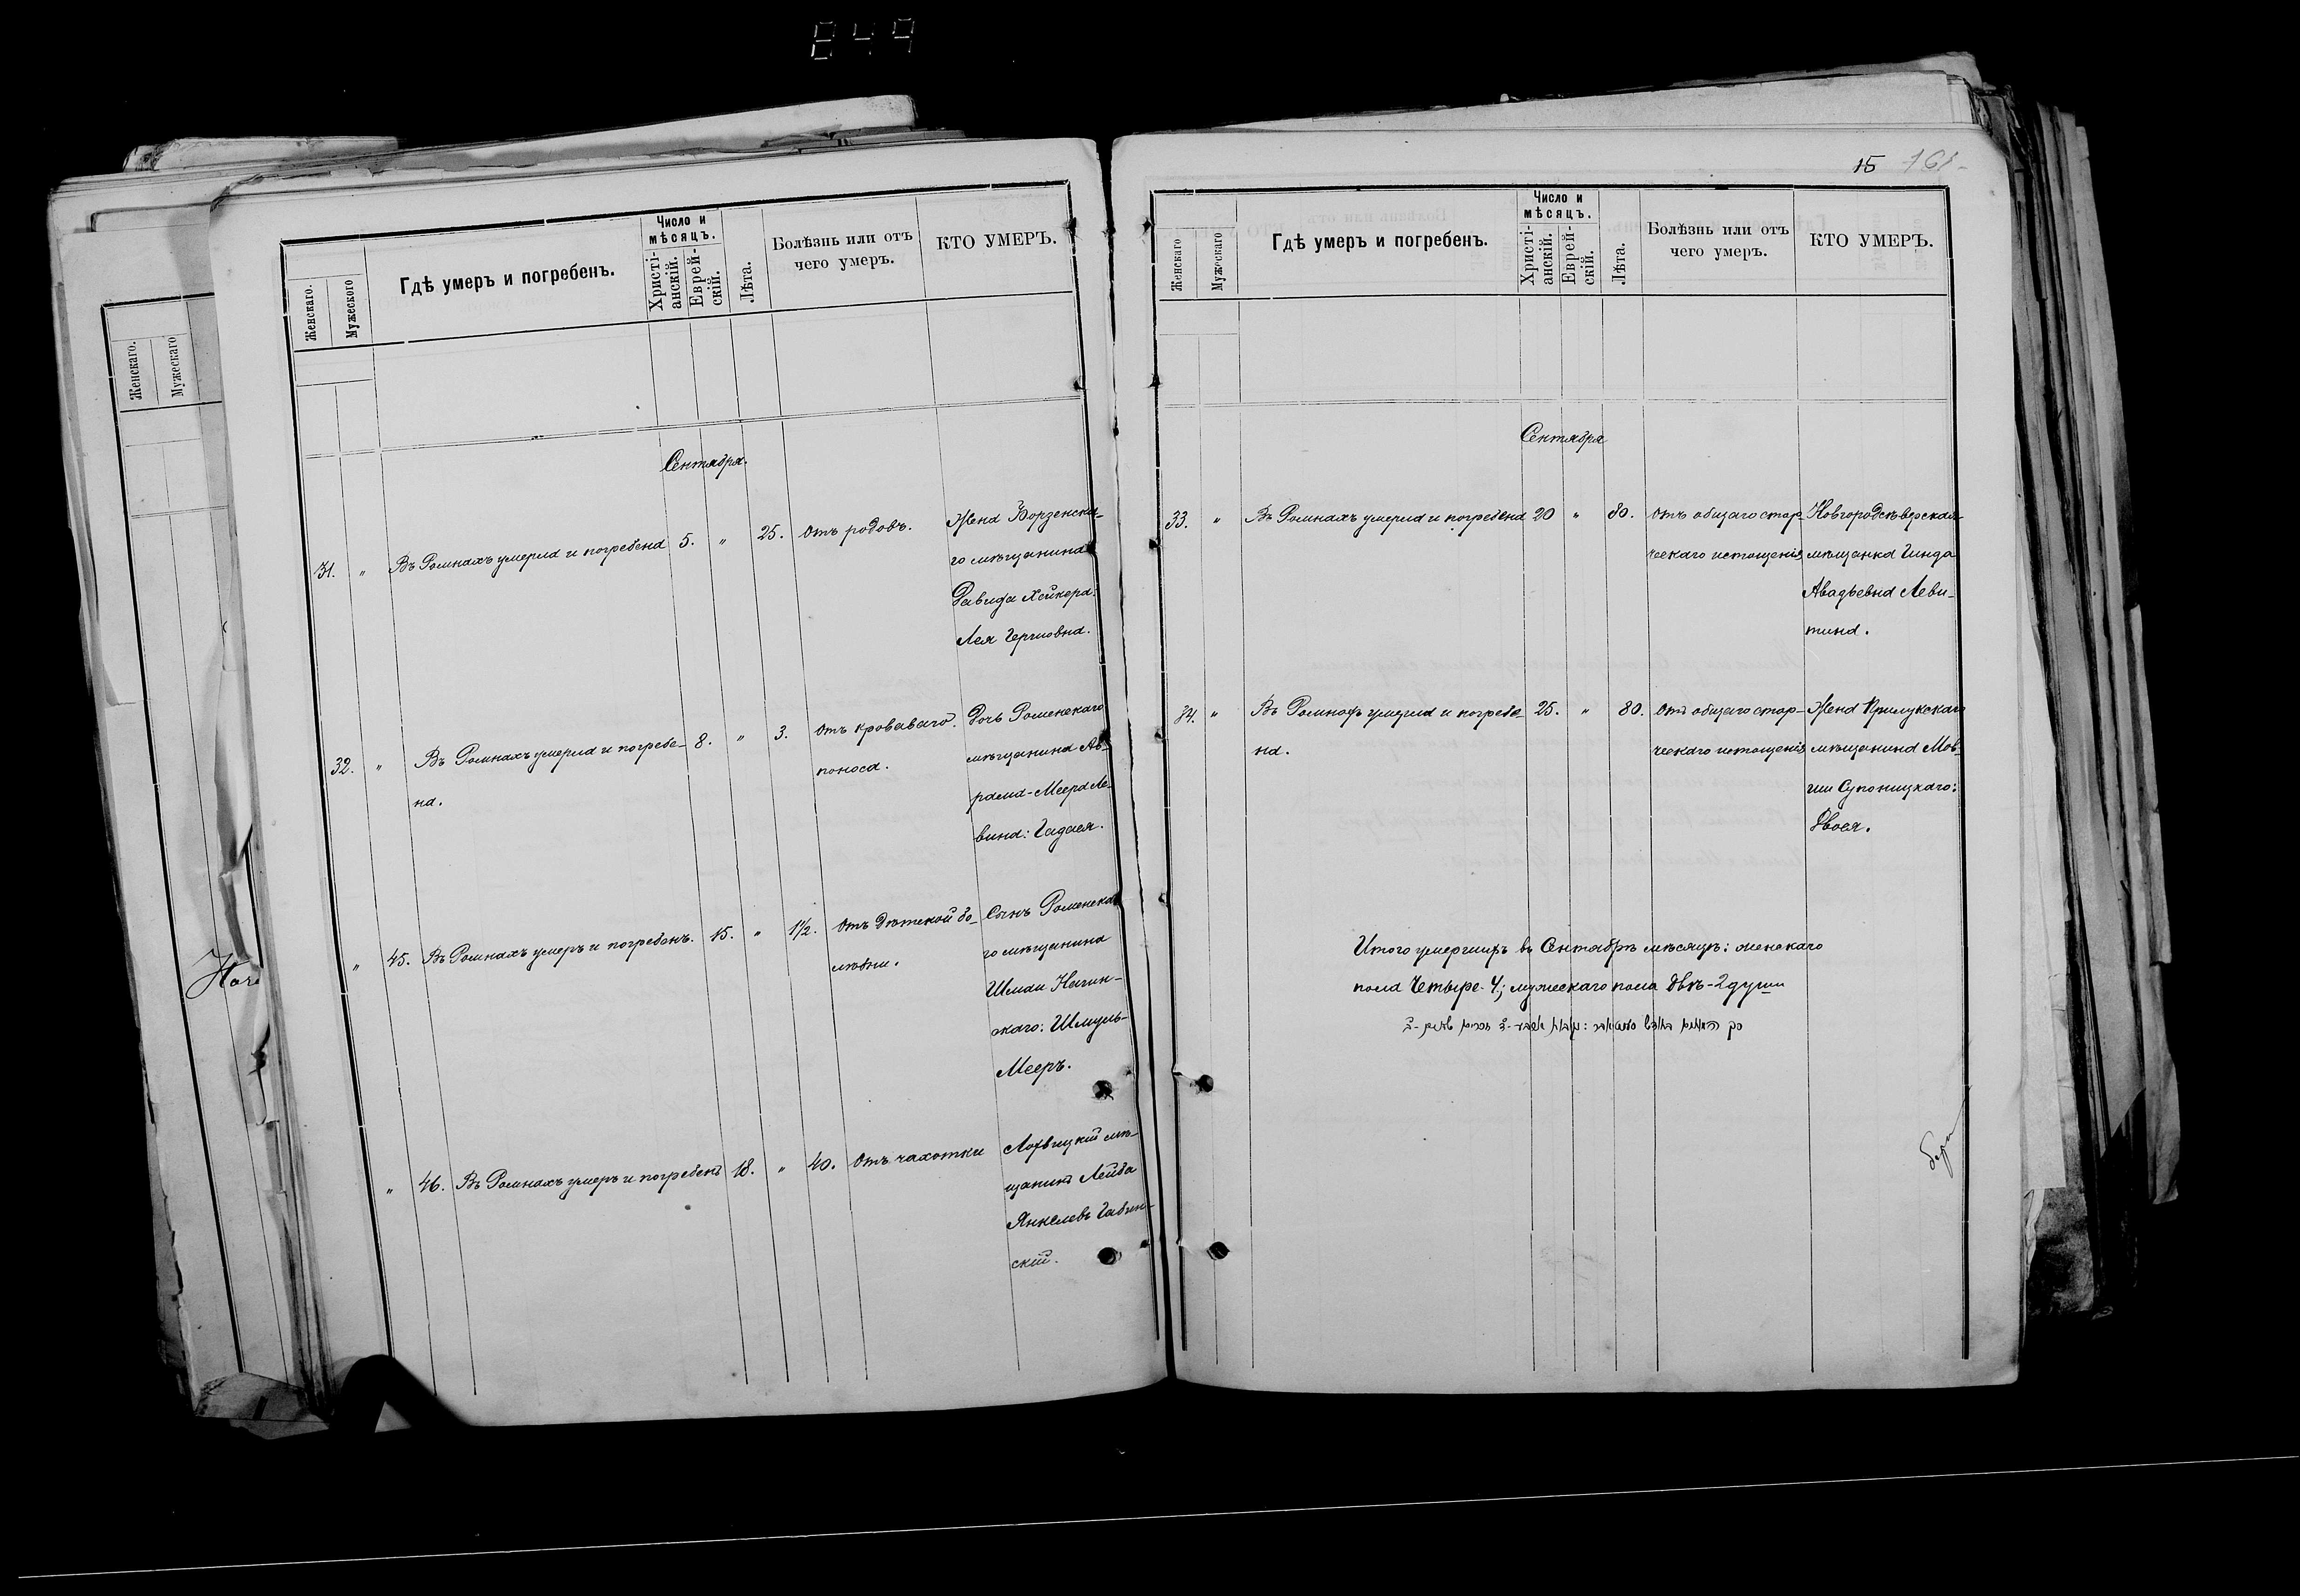 849
Женскаго.
Мужескаго
Женскаго.
Мужеского
Гдѣ умеръ и погребенъ.
Число и
мѣсяцъ.
Христі-
анскій.
Еврей-
скій.
Лѣта.
Болѣзнь или отъ
чего умеръ.
КТО УМЕРЪ.
Сентября.
31. " Въ Ромнахъ умерла и погребена 5. " 25. Отъ родовъ. Жена Борзенска-
го мѣщанина
Давида Хейкера:
Лея
32. " Въ Ромнахъ умерла и погребе- 8. " 3. Отъ кроваваго Дочь Роменскаго
на. поноса. мѣщанина Ав-
рама-Меера Ле-
вина:
" 45. Въ Ромнахъ умеръ и погребенъ. 15. " 1½. Отъ дѣтской бо- Сынъ Роменска-
лѣзни. го мѣщанина
скаго: Шмуль-
Мееръ.
" 46. Въ Ромнахъ умеръ и погребенъ 18. " 40. Отъ чахотки Лохвицкій мѣ-
щанинъ Лейба
Янкелевъ
скій.
15 161-
Женскаго
Мужескаго
Гдѣ умеръ и погребенъ.
Число и
мѣсяцъ.
Христі-
анскій.
Еврей-
скій.
Лѣта.
Болѣзнь или отъ
чего умеръ.
КТО УМЕРЪ.
Сентября
33. " Въ Ромнахъ умерла и погребена 20 " 80. Отъ общаго стар- Новгородсѣверская
ческаго истощенія мѣщанка Гинда
Авадьевна Леви-
тина.
34. " Въ Ромнахъ умерла и погребе- 25. " 80. Отъ общаго стар- Жена Прилукскаго
на. ческаго истощенія мѣщанина Мов-
ши Супоницкаго:
Двося.
Итого умершихъ въ Сентябрѣ мѣсяцѣ: женскаго
пола Четыре-4; мужескаго пола двѣ-2 души